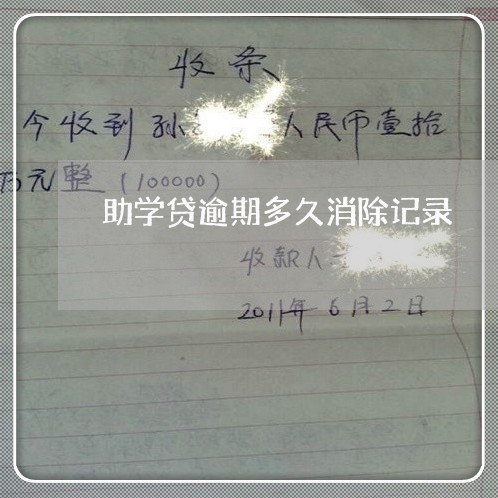 收条
今收到孙 人民币壹拾
万元整(100000)
助学贷逾期多久消除记录
收款人
2011年6月2日